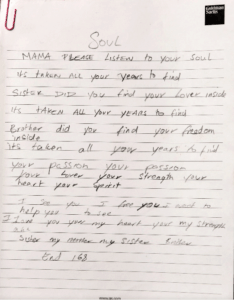 SOUL
MAMA PLEASE LISTEN to your SOUL
its TAKEN ALL your years to find
Sister DID you find your Lover inside
its TAKEN ALL your years to find
Brother did you find your freedom
inside
its taken all your years to find
your passion your passion
your lover your strength your
heart your spirit
I see you I love you I need to
help you to see
I love you your my heart your my strength
Sister my mother my sister
End 168